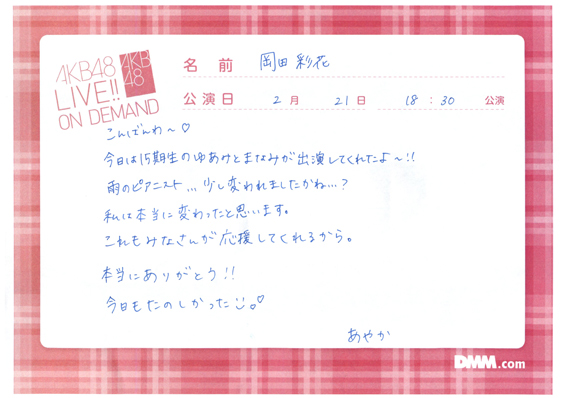 AKB48
LIVE!!
ON DEMAND
AKB
48
名前 岡田彩花
公演日 2月 21日 18:30 公演
こんばんわ〜♡
今日は15期生のゆあみとまなみが出演してくれたよ〜!!
雨のピアニスト...少し変われましたかね...?
私は本当に変わったと思います。
これもみなさんが応援してくれるから。
本当にありがとう!!
今日もたのしかった。♡
あやか
DMM.com